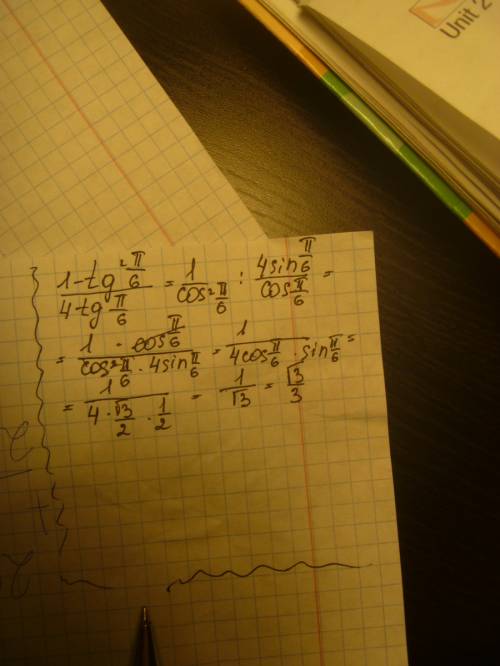 Unit 2
(1-tg²π/6)/(4tgπ/6) = 1/(cos²π/6) : (4sinπ/6)/(cosπ/6) =
= (1 · cosπ/6)/(cos²π/6 · 4sinπ/6) = 1/(4cosπ/6 · sinπ/6) =
= 1/(4 · √3/2 · 1/2) = 1/√3 = √3/3